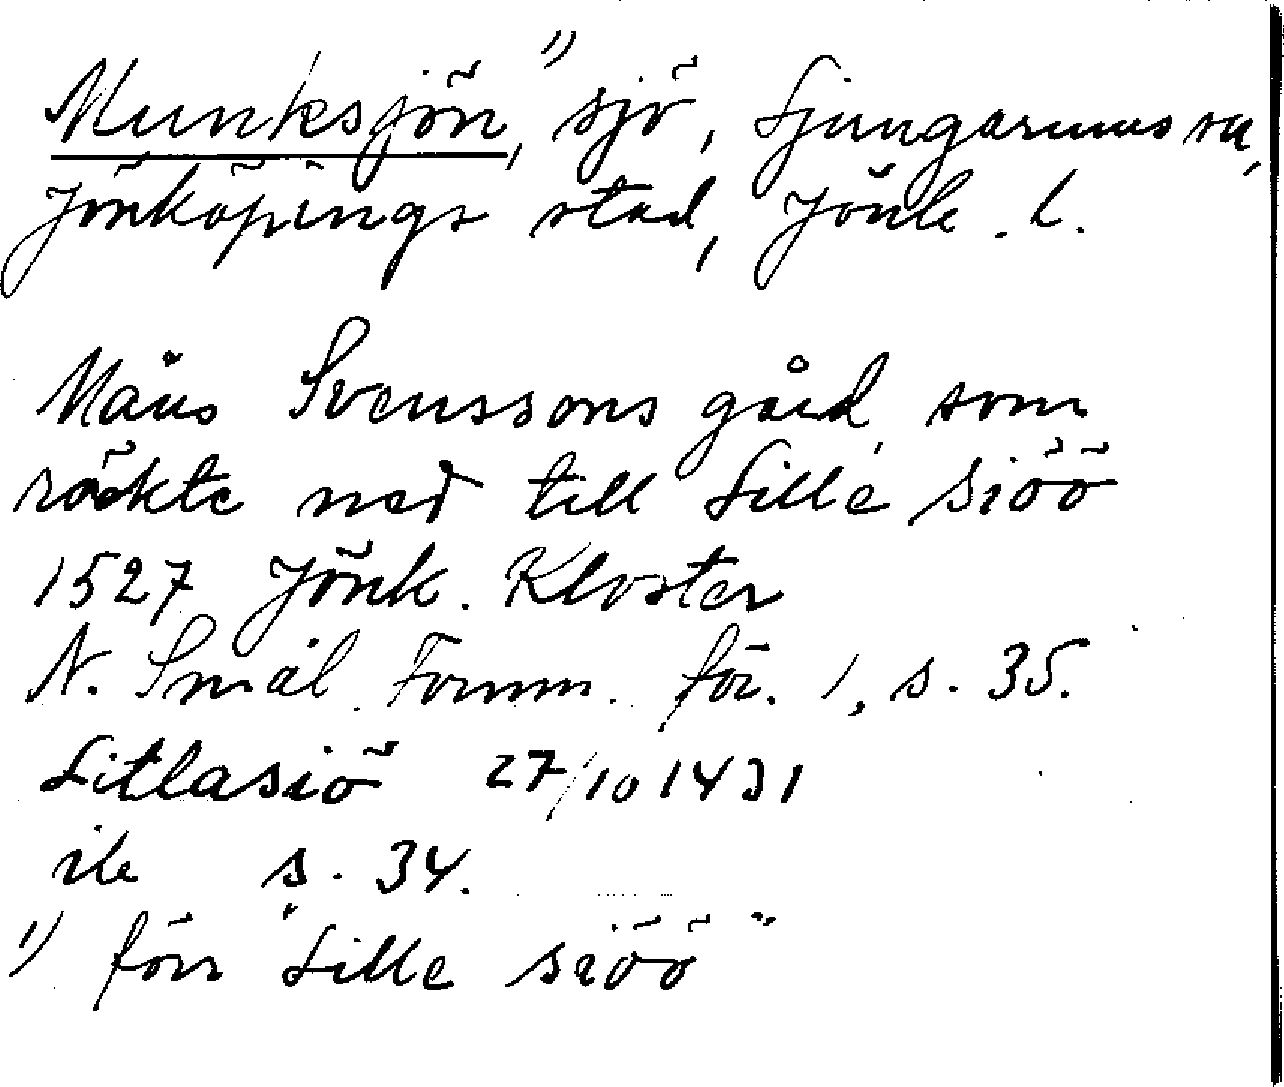 Munksjön, ¹⁾ sjö, Ljungarums sn,
Jönköpings stad, Jönk. l.
Måns Svenssons gård, som
räckte ned till Lille siöö
1527 Jönk. Kloster
N. Smål. Fornm. för. 1, s. 35.
Litlasiö 27/10 1431
ib s. 34.
¹⁾ förr "Lille siöö"